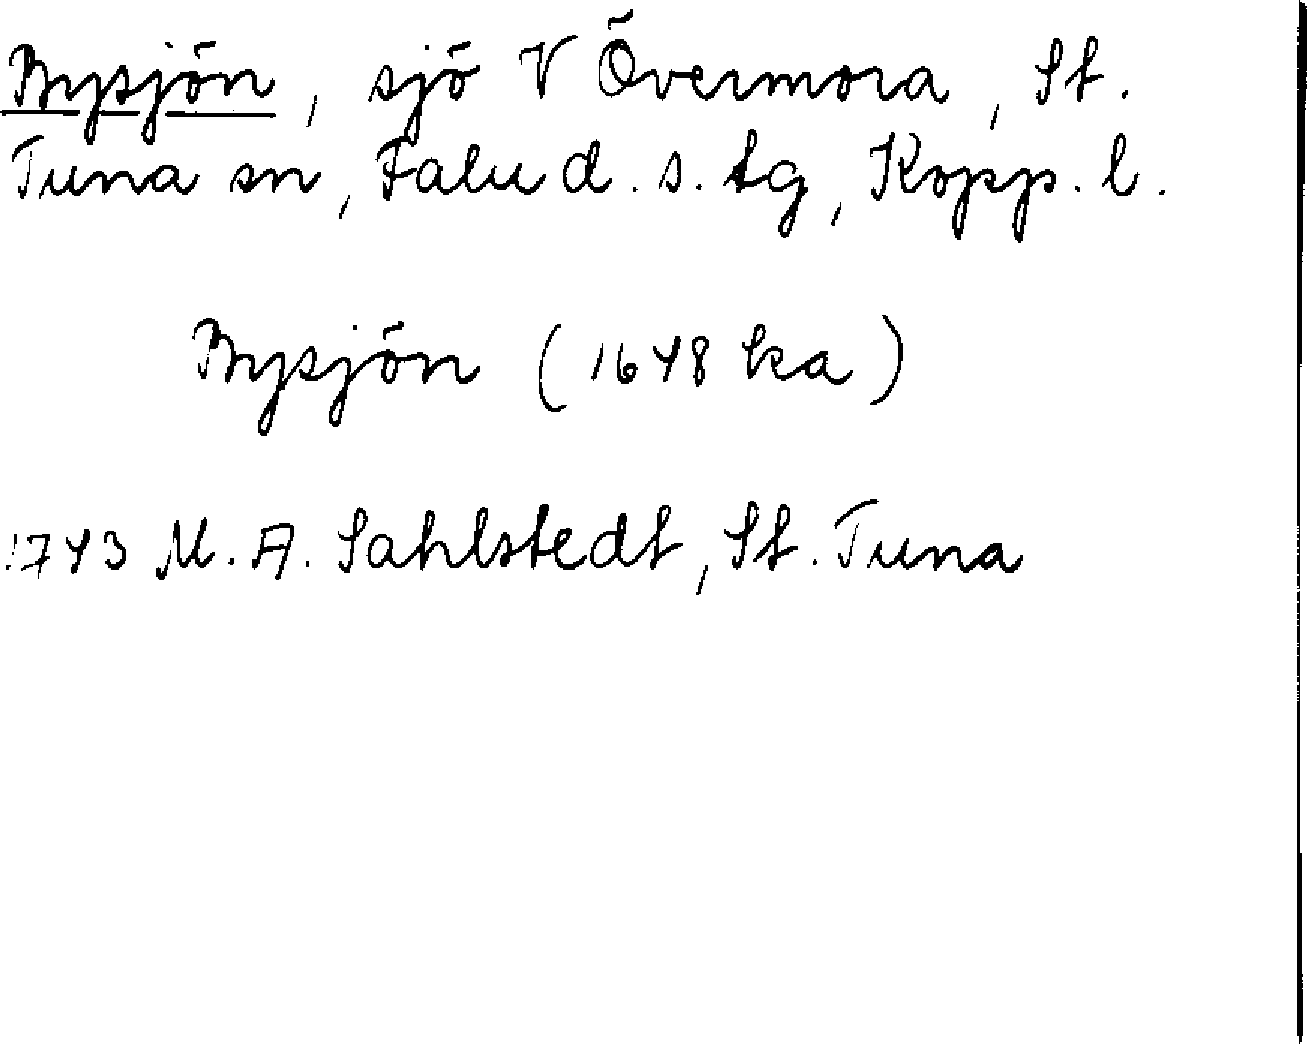 Bysjön, sjö V Övermora, St.
Tuna sn, Falu d. s. tg, Kopp. l.
Bysjön (1648 ka)
1743 M. A. Sahlstedt, St. Tuna